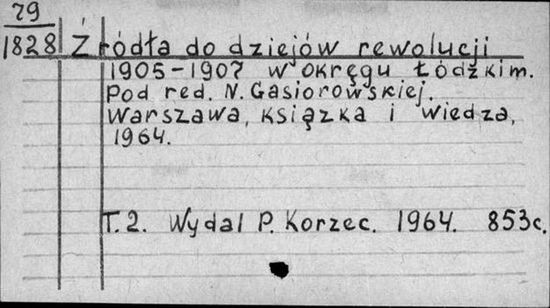 29
1828 Źródła do dziejów rewolucji
1905-1907 w okręgu Łódzkim.
Pod red. N. Gasiorowskiej.
Warszawa, Książka i Wiedza,
1964.
T.2. Wydal P. Korzec. 1964. 853c.